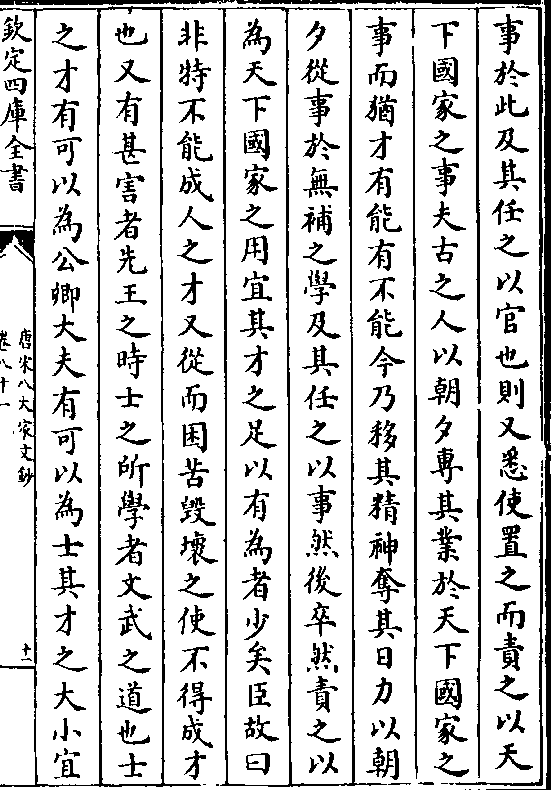 事於此及其任之以官也則又悉使置之而責之以天
下國家之事夫古之人以朝夕專其業於天下國家之
事而猶才有能有不能今乃移其精神奪其日力以朝
夕從事於無補之學及其任之以事然後卒然責之以
為天下國家之用宜其才之足以有為者少矣臣故曰
非特不能成人之才又從而困苦毀壞之使不得成才
也又有甚害者先王之時士之所學者文武之道也士
之才有可以為公卿大夫有可以為士其才之大小宜
欽定四庫全書
唐宋八大家文鈔
卷八十一
十二